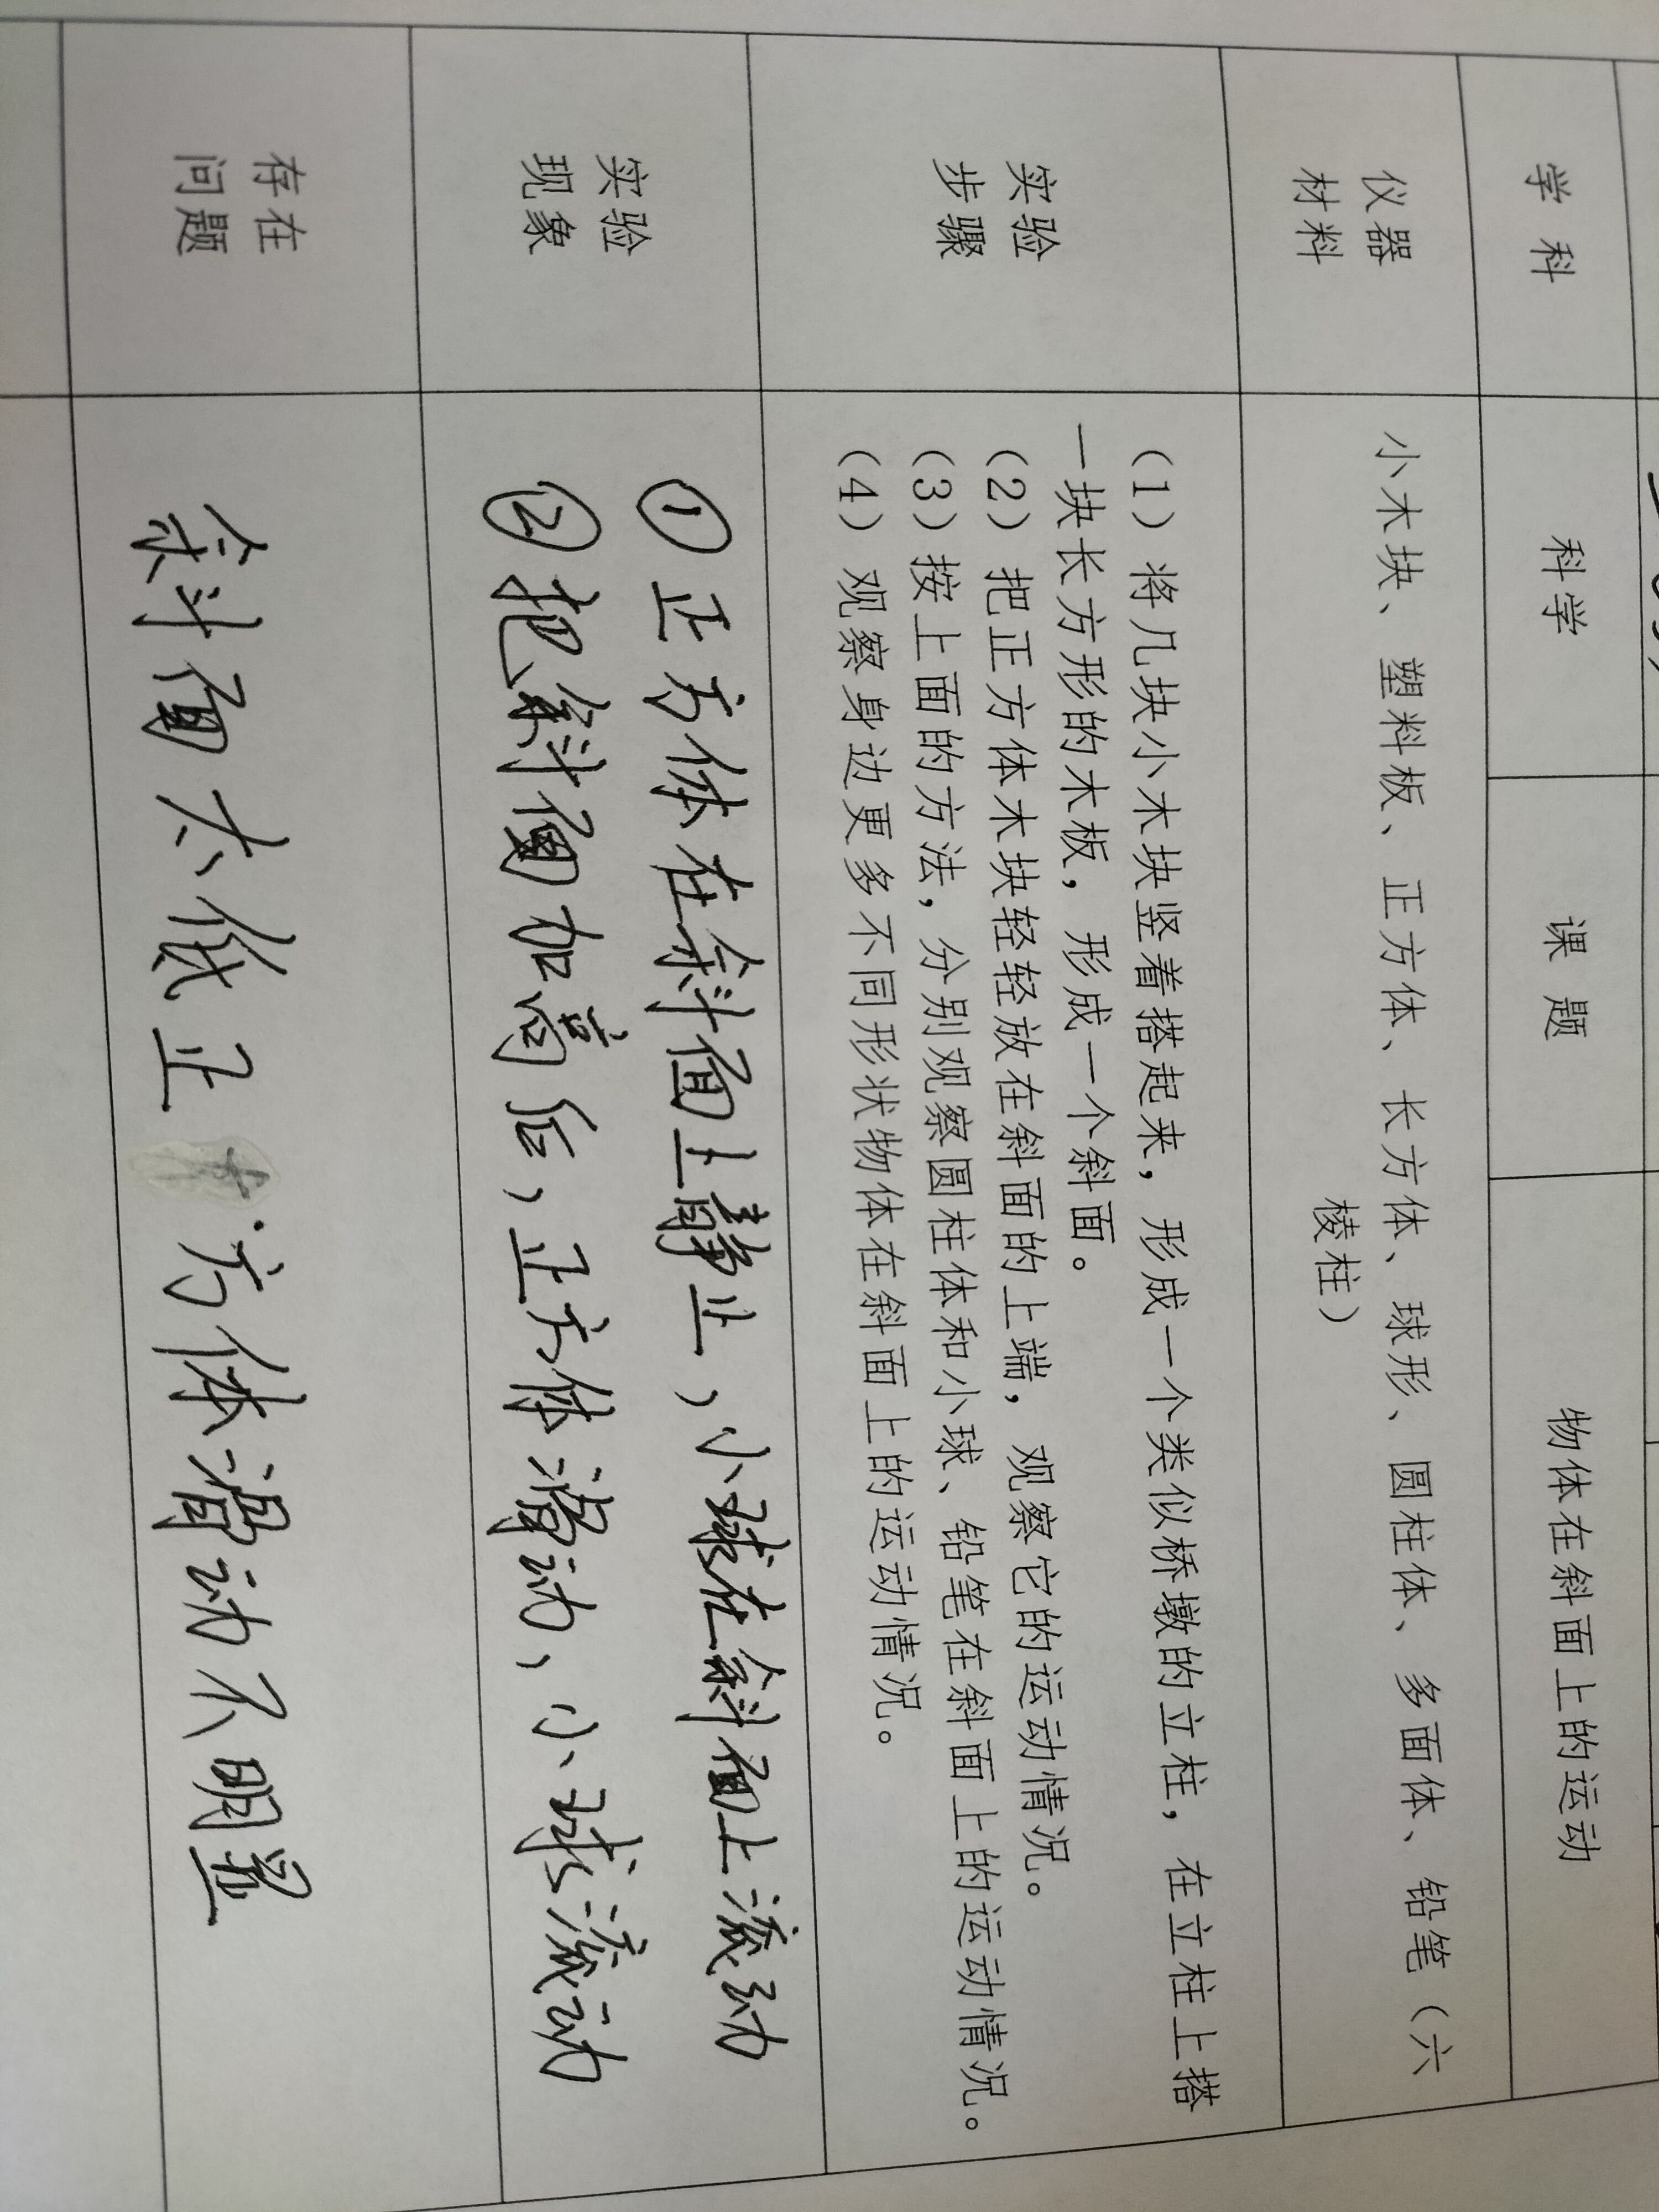 学 科 科学 课 题 物体在斜面上的运动
仪器
材料
小木块、塑料板、正方体、长方体、球形、圆柱体、多面体、铅笔（六
棱柱）
实验
步骤
（1）将几块小木块竖着搭起来，形成一个类似桥墩的立柱，在立柱上搭
一块长方形的木板，形成一个斜面。
（2）把正方体木块轻轻放在斜面的上端，观察它的运动情况。
（3）按上面的方法，分别观察圆柱体和小球、铅笔在斜面上的运动情况。
（4）观察身边更多不同形状物体在斜面上的运动情况。
实验
现象
①正方体在斜面上静止，小球在斜面上滚动
②把斜面加高后，正方体滑动，小球滚动
存在
问题
斜面太低正方体滑动不明显